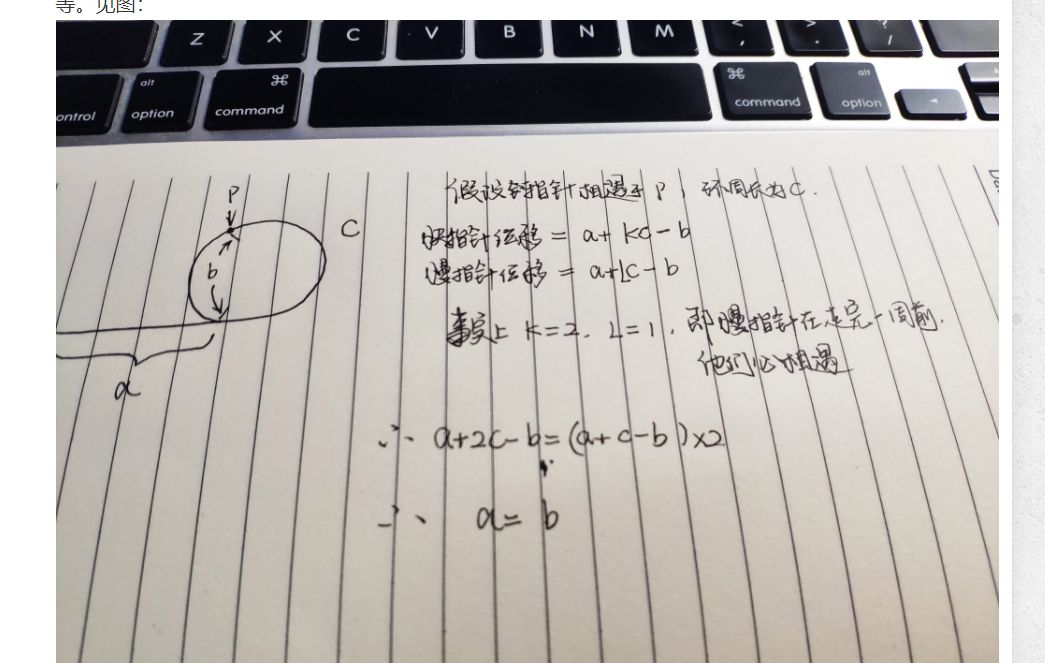 等。见图：
Z X C V B N M < , > . ? /
ontrol alt option ⌘ command ⌘ command alt option ◄
P
C
b
a
假设结指针相遇于 P，环周长为 C.
快指针位移 = a+ KC - b
慢指针位移 = a+LC - b
事实上 K=2, L=1, 即慢指针在走完一周前,
他们必相遇
∴ a+2C-b=(a+c-b)×2
∴ a= b